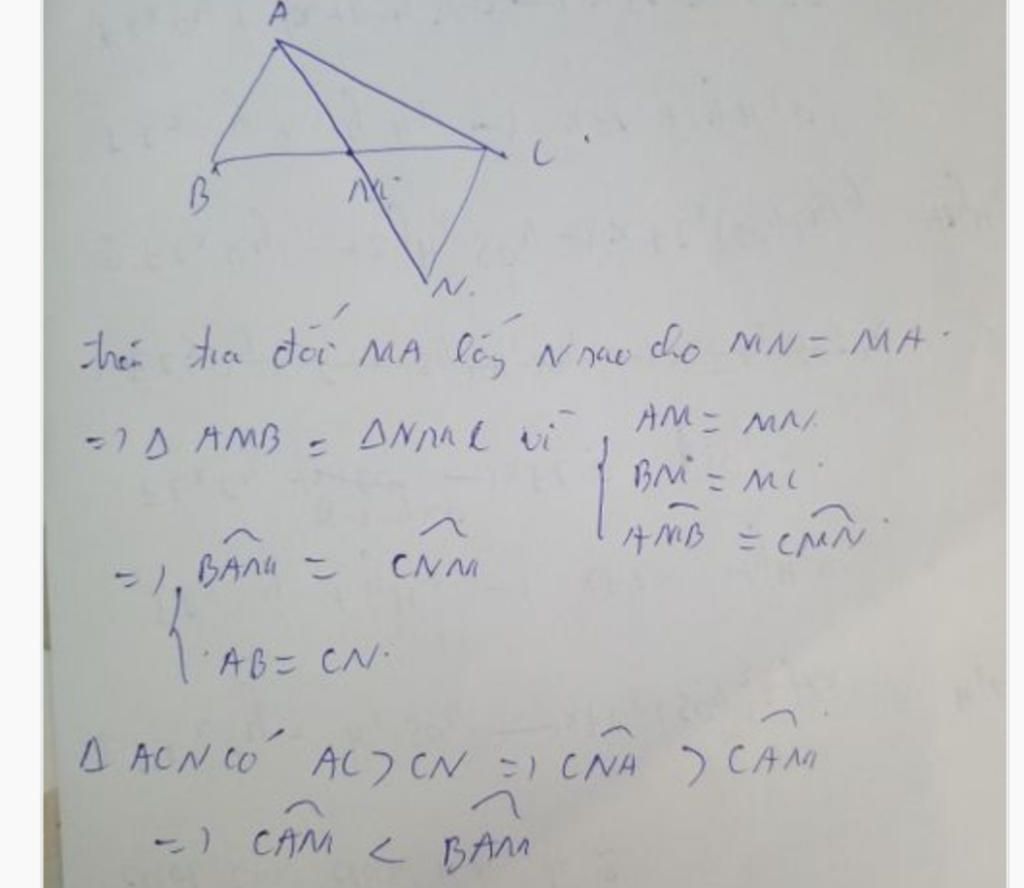 A
B
M
C
N.
trên tia đối MA lấy N sao cho MN = MA.
=> Δ AMB = ΔNMC vì { AM = MN.
BM = MC
AMB = CMN
=> { BAM = CNM
AB = CN.
Δ ACN có AC > CN => CNA > CAM
=> CAM < BAM